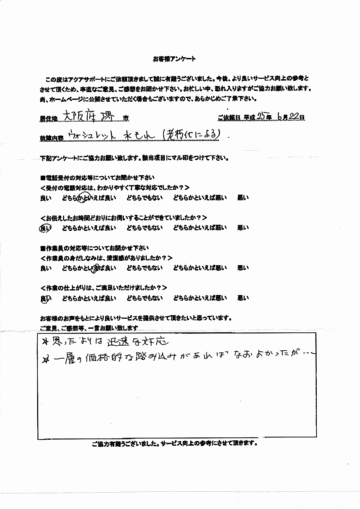 お客様アンケート
この度はアクアサポートにご依頼頂きまして誠に有難うございました。今後、より良いサービス向上の参考と
させて頂くため、率直なご意見、ご感想をお聞かせ下さい。お忙しい中、恐れ入りますがご協力お願い致します。
尚、ホームページに公開させていただく場合もございますので、あらかじめご了承下さい。
居住地 大阪府 堺 市 ご依頼日 平成 25年 6月 22日
故障内容 ウォシュレット 水もれ (老朽化による)
下記アンケートにご協力お願い致します。該当項目にマル印をつけて下さい。
■電話受付の対応等についてお聞かせ下さい
<受付の電話対応は、わかりやすく丁寧な対応でしたか?>
良い どちらかといえば良い どちらでもない どちらかといえば悪い 悪い
<お伝えしたお時間どおりにお伺いすることができていましたか?>
良い どちらかといえば良い どちらでもない どちらかといえば悪い 悪い
■作業員の対応等についてお聞かせ下さい
<作業員の身だしなみは、清潔感がありましたか?>
良い どちらかといえば良い どちらでもない どちらかといえば悪い 悪い
<作業の仕上がりは、ご満足いただけましたか?>
良い どちらかといえば良い どちらでもない どちらかといえば悪い 悪い
お客様のお声をもとにより良いサービスを提供させて頂きたいと思っています。
ご意見、ご感想等、一言お願い致します
*思ったよりは迅速な対応
*一層の価格的な踏み込みがあればなおよかったが…
ご協力有難うございました。サービス向上の参考にさせて頂きます。